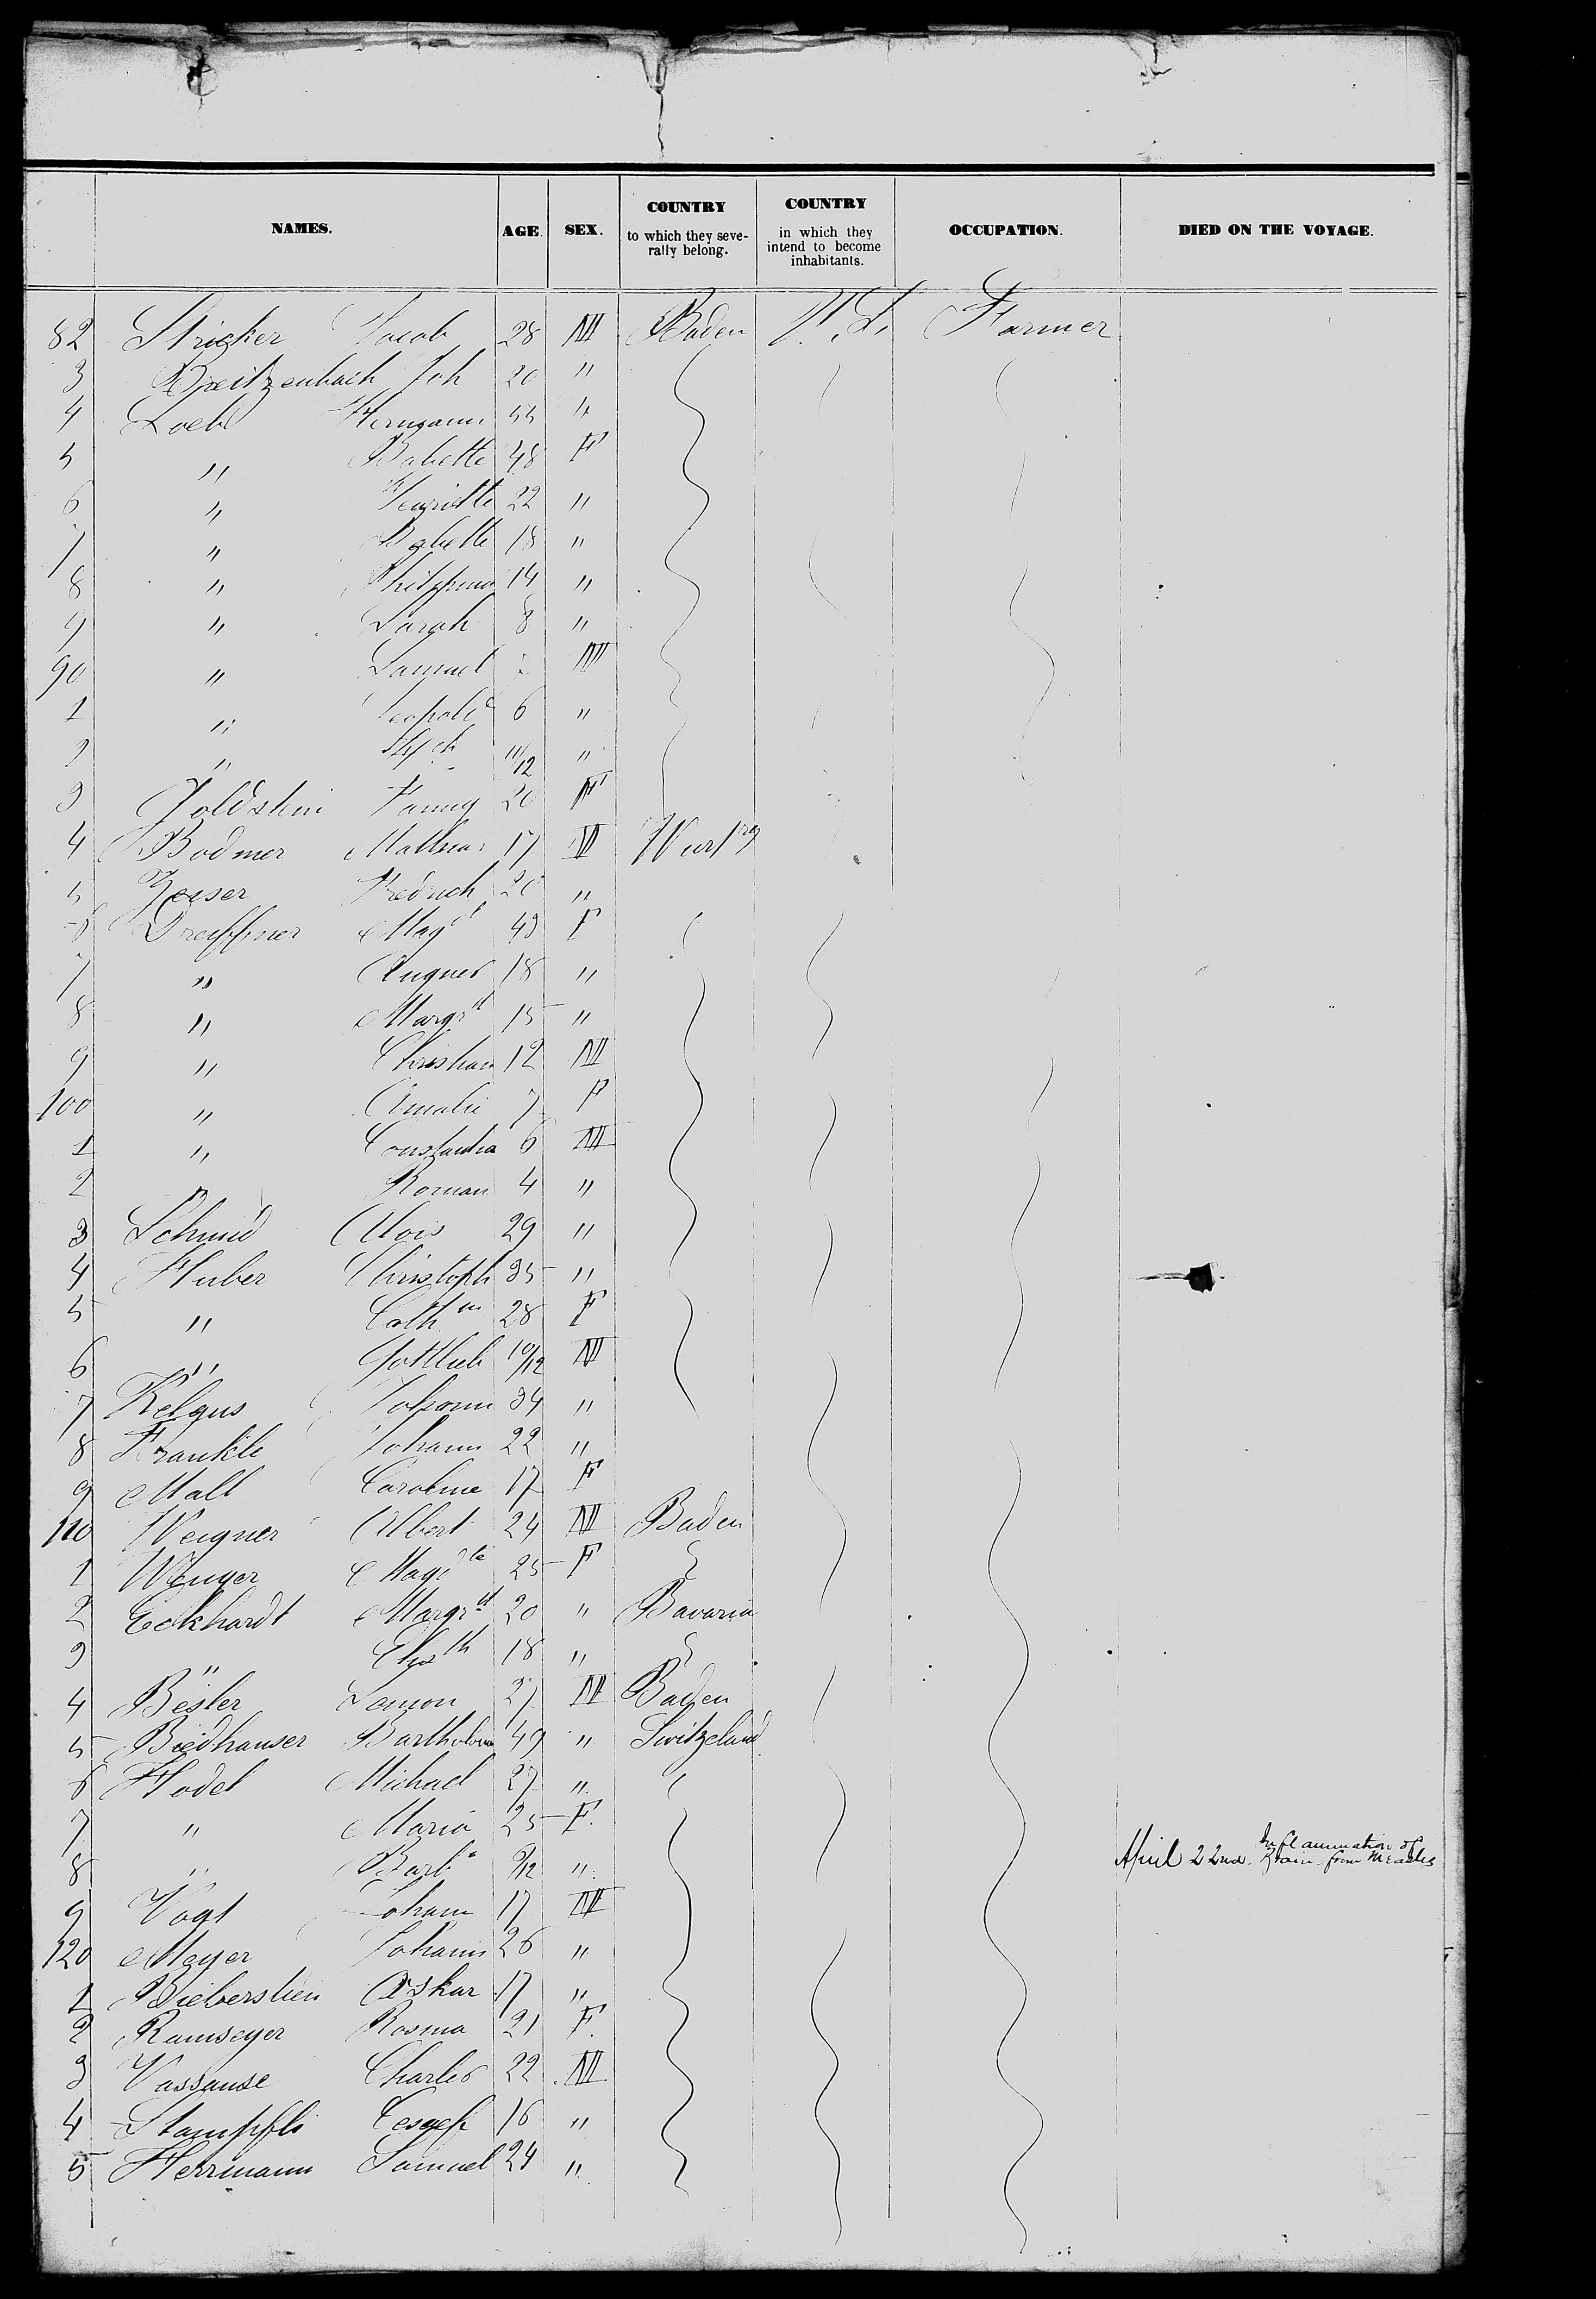 NAMES. AGE. SEX. COUNTRY to which they severally belong. COUNTRY in which they intend to become inhabitants. OCCUPATION. DIED ON THE VOYAGE.
82 Stricker Jacob 28 M Baden U. S. Farmer
3 Breitzenbach Joh 20 "
4 Loeb Hermann 55 "
5 " Babette 48 F
6 " Henriette 22 "
7 " Babette 18 "
8 " Philippina 14 "
9 " Sarah 8 "
90 " Samuel M
1 " Leopold 6 "
2 " 11/12 "
3 Goldstein Fanny 20 F
4 Bodmer Mathias 17 M Wurtbg
5 Zeiser Fredrich 20 "
6 Magd 43 F
7 " 18 "
8 " Margrt 15 "
9 " Christian 12 M
100 " Amalie 7 F
1 " Constantia 6 M
2 " Roman 4 "
3 Schmid Alois 29 "
4 Huber Christoph 35 "
5 " Cath 28 F
6 " Gottlieb 10/12 M
7 Kelgus Johann 34 "
8 Frankle Johann 22 "
9 Mall Caroline 17 F
110 Weigner Albert 24 M Baden
1 Wenger Magdla 25 F
2 Eckhardt Margrt 20 " Bavaria
3 " Elisth 18 "
4 Besler 27 M Baden
5 Biedhauser Bartholom 49 " Switzeland
6 Hodel Michael 27 "
7 " Maria 25 F.
8 " Barba 9/12 " April 22nd. Inflammation of Brain from Measles
9 Vogt Johann 17 M
120 Meyer Johann 26 "
1 Bieberstien Oskar 17 "
2 Ramseyer Rosina 21 F.
3 Vassause Charles 22 M
4 Stampfli 16 "
5 Herrmann Samuel 24 "